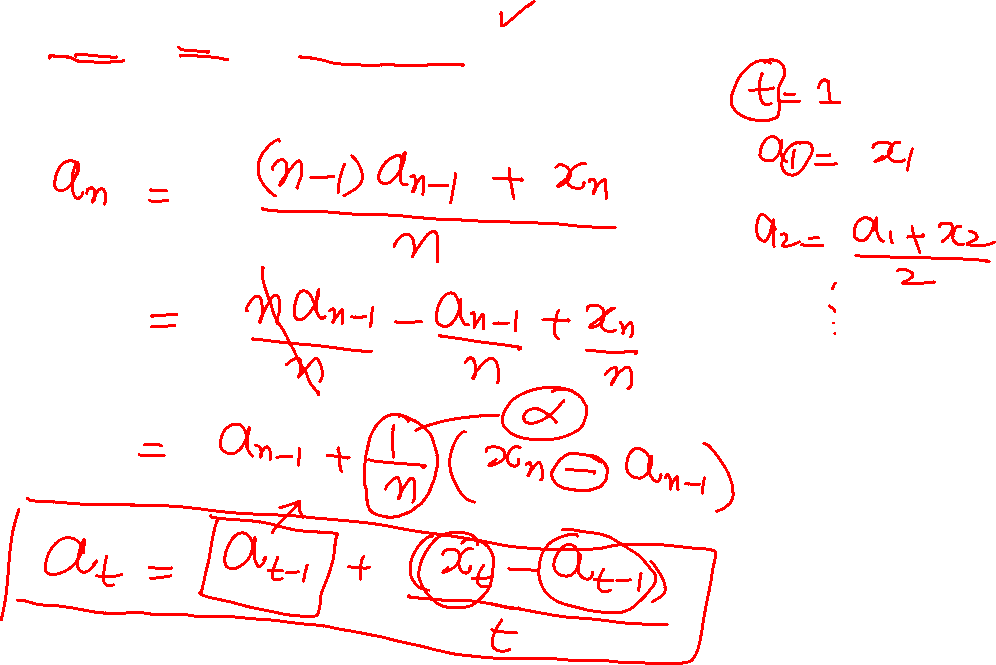 a_n = ((n-1) a_{n-1} + x_n) / n
= n a_{n-1} / n - a_{n-1} / n + x_n / n
α
= a_{n-1} + 1/n (x_n - a_{n-1})
a_t = a_{t-1} + (x_t - a_{t-1}) / t
t = 1
a_1 = x_1
a_2 = (a_1 + x_2) / 2
⋮